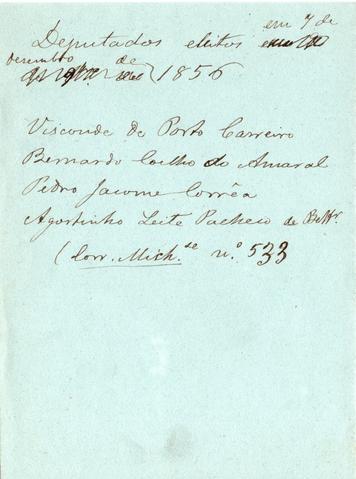 Deputados eleitos em 7 de
Desembro de 1856
Visconde de Porto Carreiro
Bernardo Coelho do Amaral
Pedro Jacome Corrêa
Agostinho Leite Pacheco de Bettr.
(Corr. Mich.se n.º 533